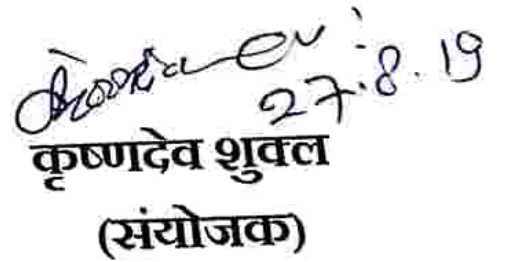 27.8.19
कृष्णदेव शुक्ल
(संयोजक)